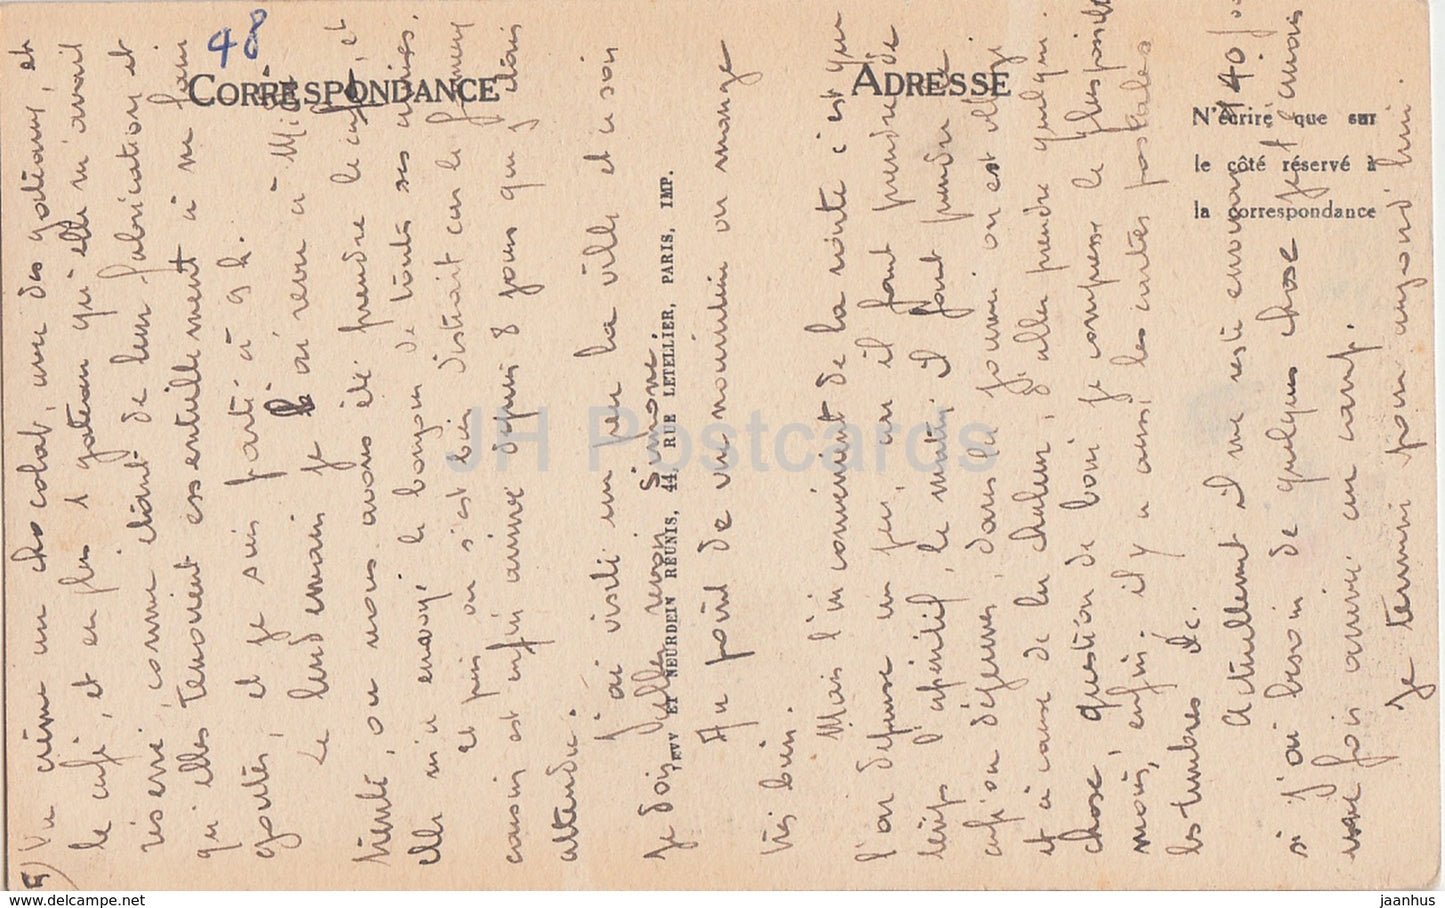 48
CORRESPONDANCE
ADRESSE
N'écrire que sur
le côté réservé à
la correspondance
LEVY ET NEURDEIN RÉUNIS, 44, RUE LETELLIER, PARIS, IMP.
5) Vu crème un chocolat, avec des gâteaux, et
le café, et en plus 1 gateau qu'elle m'avait
réservé, comme étant de leur fabrication, et
qu'elles tenaient essentiellement à me faire
goûter, et je suis parti à 9 h.
Le lendemain je
tienté, où nous avons été prendre le café, et
elle m'a envoyé la bonjour de toutes ses amies.
et puis on s'est bien distrait car le
cousin est enfin arrivé depuis 8 jours qu'
attendre.
J'ai visité un peu la ville, et ce soir
je dois aller revoir Simone.
Au point de vue nourriture on mange
très bien.
Mais l'inconvénient de la route c'est que
l'on dépense un peu, car il faut prendre de
temps l'apéritif, le matin il faut prendre le
café ou déjeuner, dans la journée on est obligé
et à cause de la chaleur, d'aller prendre quelque
chose, question de boire je compresse le plus possible
mais, enfin il y a aussi les cartes postales
les timbres etc.
Actuellement il me reste environ 140 f
si j'ai besoin de quelques chose je t'
une fois arrivé au camp.
Je termine pour aujourd'hui.
JH Postcards
www.delcampe.net
jaanhus